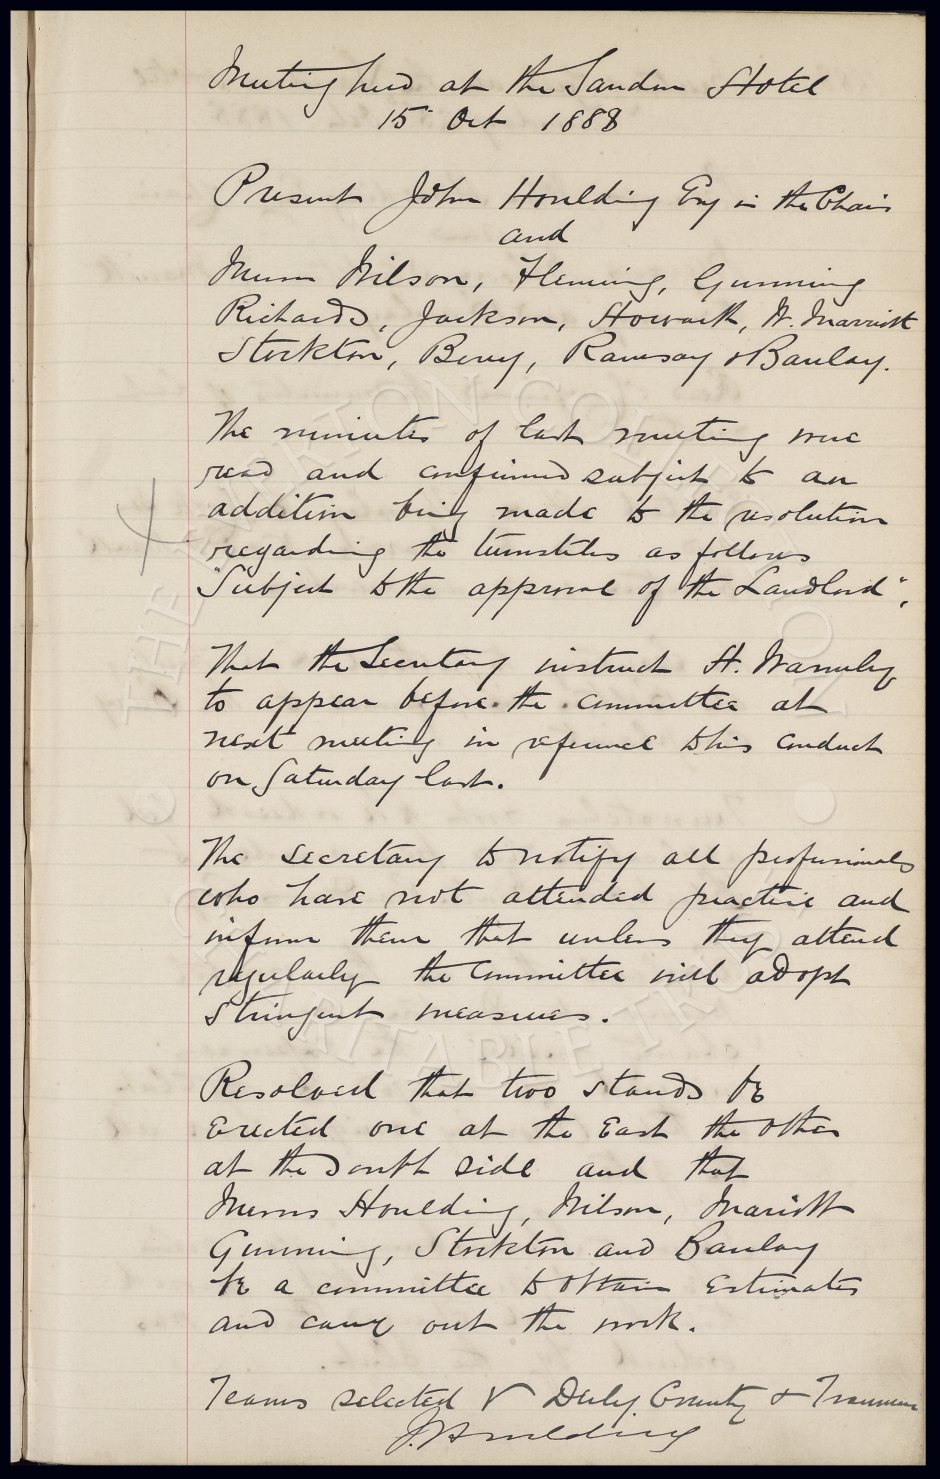 Meeting held at the Sandon Hotel
15 Oct 1888
Present John Houlding Esq in the Chair
and
Messrs Wilson, Fleming, Gunning
Richards, Jackson, Howarth, W. Marriott
Stockton, Berry, Ramsay & Barclay.
The minutes of last meeting were
read and confirmed subject to an
addition being made to the resolution
regarding the turnstiles as follows
"Subject to the approval of the Landlord".
That the Secretary instruct H. Warmby
to appear before the committee at
next meeting in reference to his conduct
on Saturday last.
The secretary to notify all professionals
who have not attended practice and
inform them that unless they attend
regularly the Committee will adopt
stringent measures.
Resolved that two stands be
erected one at the East the other
at the South side and that
Messrs Houlding, Wilson, Mariott
Gunning, Stockton and Barclay
be a committee to obtain estimates
and carry out the work.
Teams selected V Derby County & Tranmere
J. Houlding
THE EVERTON COLLECTION
CHARITABLE TRUST